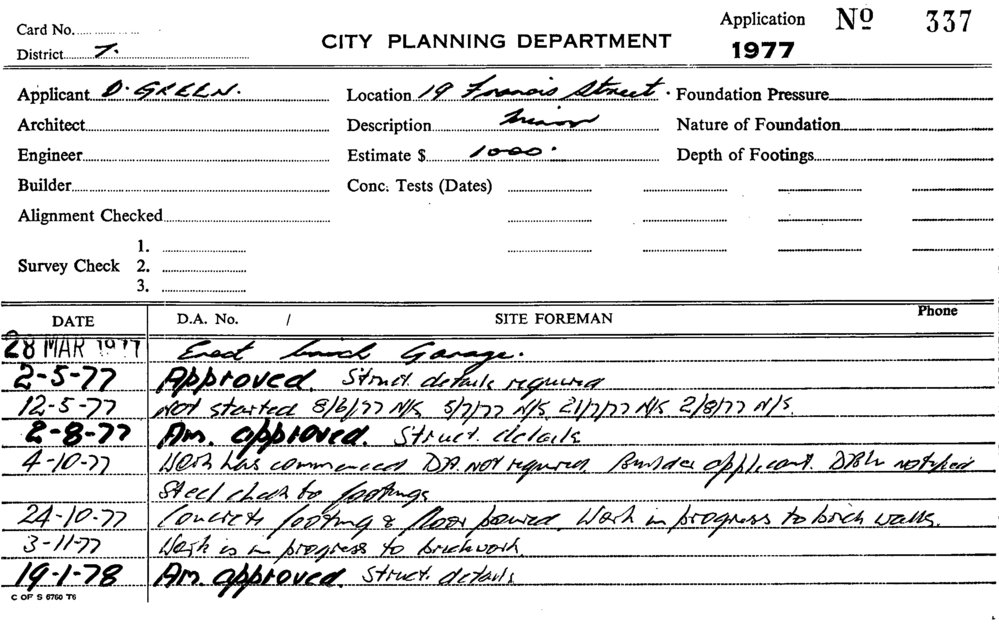 Card No.
District T.
CITY PLANNING DEPARTMENT
Application No 337
1977
Applicant D. GREEN.
Location 19 Francis Street.
Foundation Pressure
Architect
Description Minor
Nature of Foundation
Engineer
Estimate $ 1000.
Depth of Footings
Builder
Conc. Tests (Dates)
Alignment Checked
Survey Check
1.
2.
3.
DATE D.A. No. / SITE FOREMAN Phone
28 MAR 1977 Erect brick Garage.
2-5-77 Approved. Struct. details required
12-5-77 Not started 8/6/77 N/S 5/7/77 N/S 21/7/77 N/S 2/8/77 N/S.
2-8-77 Am. approved. Struct. details
4-10-77 Work has commenced DA not required Builder applicant. notified
Steel check to footings
24-10-77 Concrete footing & floor poured. Work in progress to brick walls.
3-11-77 Work is in progress to brickwork.
19-1-78 Am. approved. Struct. details
C OF S 6760 T6